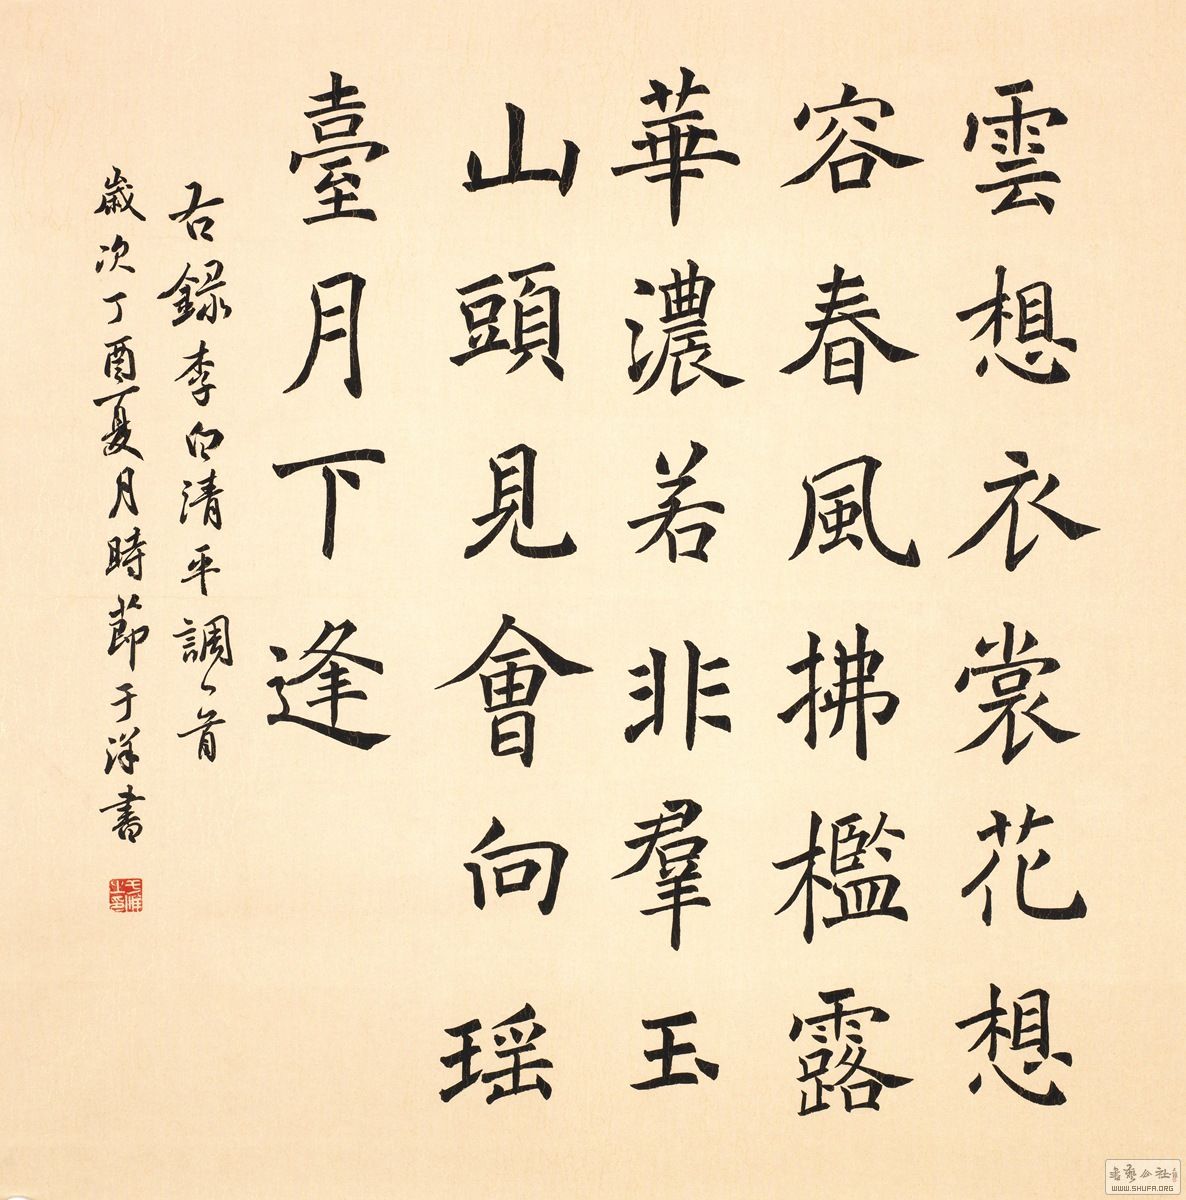 雲想衣裳花想
容春風拂檻露
華濃若非羣玉
山頭見會向瑶
臺月下逢
右録李白清平調一首
歲次丁酉夏月時節于洋書
WWW.SHUFA.ORG